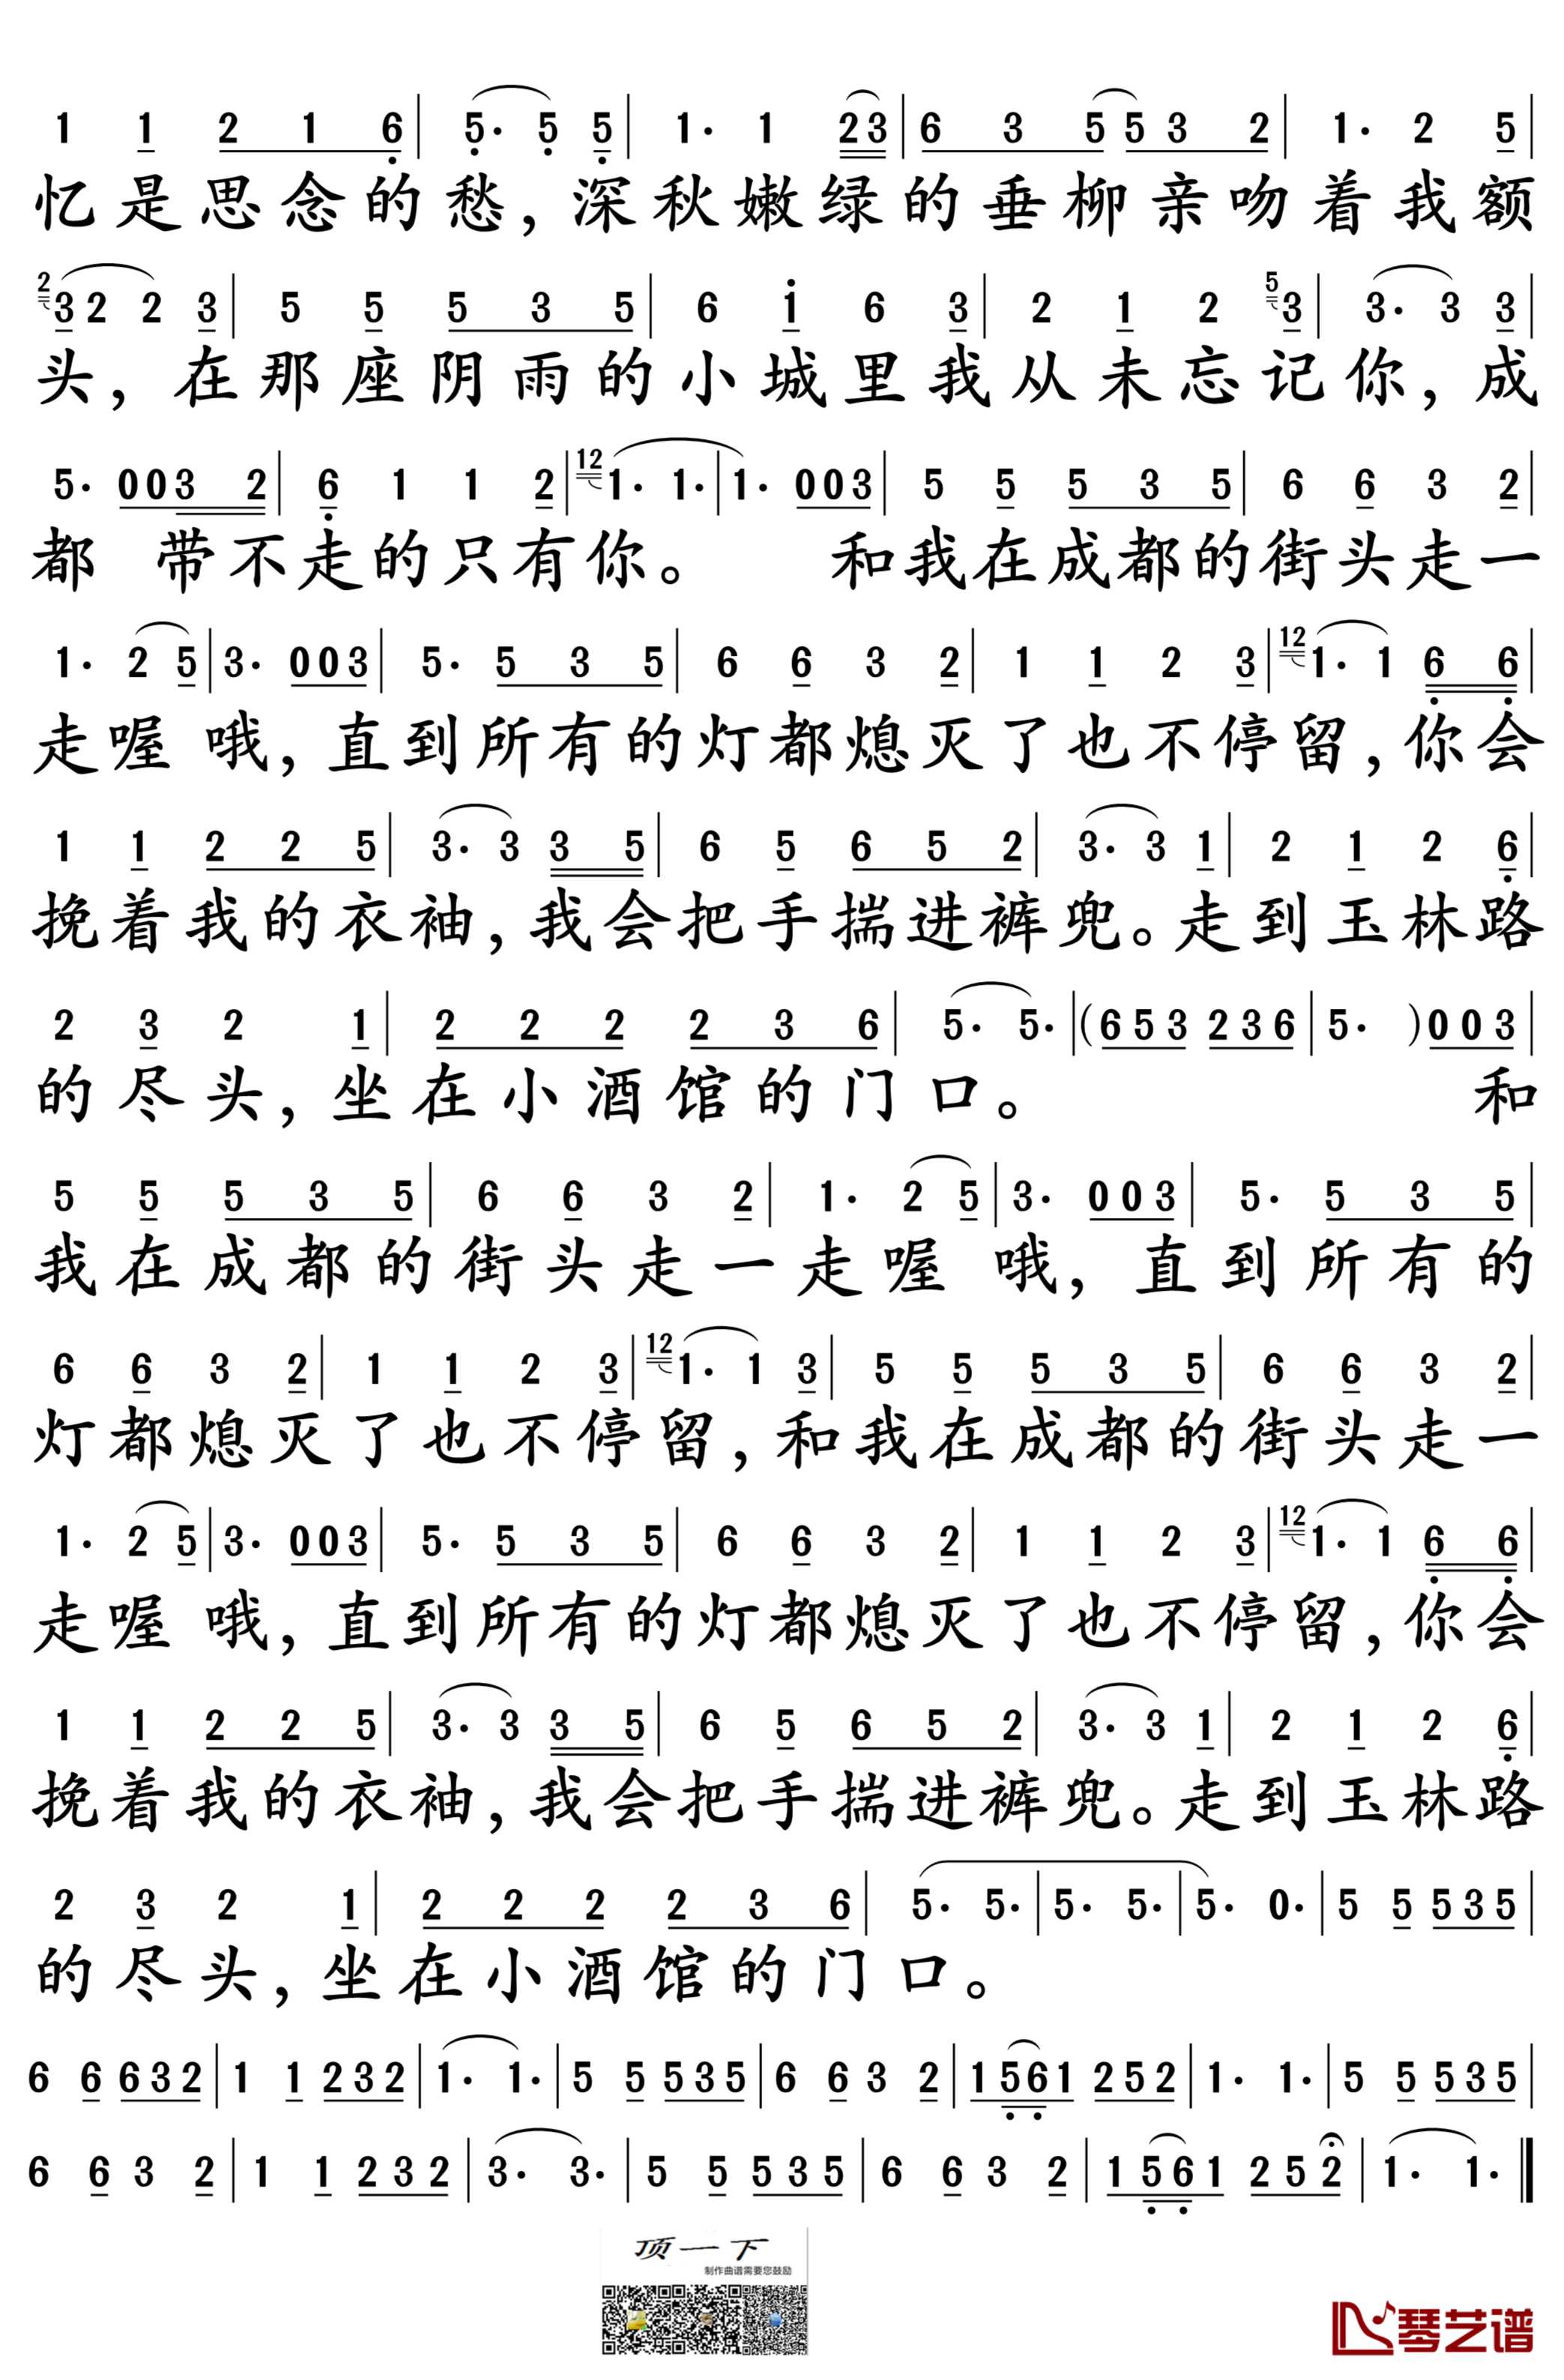 1 1 2 1 6 | 5· 5 5 | 1· 1 23 | 6 3 5 5 3 2 | 1· 2 5 |
忆是思念的愁，深秋嫩绿的垂柳亲吻着我额
2 3 2 2 3 | 5 5 5 3 5 | 6 1 6 3 | 2 1 2 5 3 | 3· 3 3 |
头，在那座阴雨的小城里我从未忘记你，成
5· 003 2 | 6 1 1 2 | 12 1· 1· | 1· 003 | 5 5 5 3 5 | 6 6 3 2 |
都 带不走的只有你。 和我在成都的街头走一
1· 2 5 | 3· 003 | 5· 5 3 5 | 6 6 3 2 | 1 1 2 3 | 12 1· 1 6 6 |
走喔 哦，直到所有的灯都熄灭了也不停留，你会
1 1 2 2 5 | 3· 3 3 5 | 6 5 6 5 2 | 3· 3 1 | 2 1 2 6 |
挽着我的衣袖，我会把手揣进裤兜。走到玉林路
2 3 2 1 | 2 2 2 2 3 6 | 5· 5· | (653 236 | 5· )003 |
的尽头，坐在小酒馆的门口。 和
5 5 5 3 5 | 6 6 3 2 | 1· 2 5 | 3· 003 | 5· 5 3 5 |
我在成都的街头走一走喔 哦，直到所有的
6 6 3 2 | 1 1 2 3 | 12 1· 1 3 | 5 5 5 3 5 | 6 6 3 2 |
灯都熄灭了也不停留，和我在成都的街头走一
1· 2 5 | 3· 003 | 5· 5 3 5 | 6 6 3 2 | 1 1 2 3 | 12 1· 1 6 6 |
走喔 哦，直到所有的灯都熄灭了也不停留，你会
1 1 2 2 5 | 3· 3 3 5 | 6 5 6 5 2 | 3· 3 1 | 2 1 2 6 |
挽着我的衣袖，我会把手揣进裤兜。走到玉林路
2 3 2 1 | 2 2 2 2 3 6 | 5· 5· | 5· 5· | 5· 0· | 5 5 535 |
的尽头，坐在小酒馆的门口。
6 6 632 | 1 1 232 | 1· 1· | 5 5 535 | 6 6 3 2 | 1561 252 | 1· 1· | 5 5 535 |
6 6 3 2 | 1 1 232 | 3· 3· | 5 5 535 | 6 6 3 2 | 1561 252 | 1· 1· ‖
顶一下
制作曲谱需要您鼓励
琴艺谱